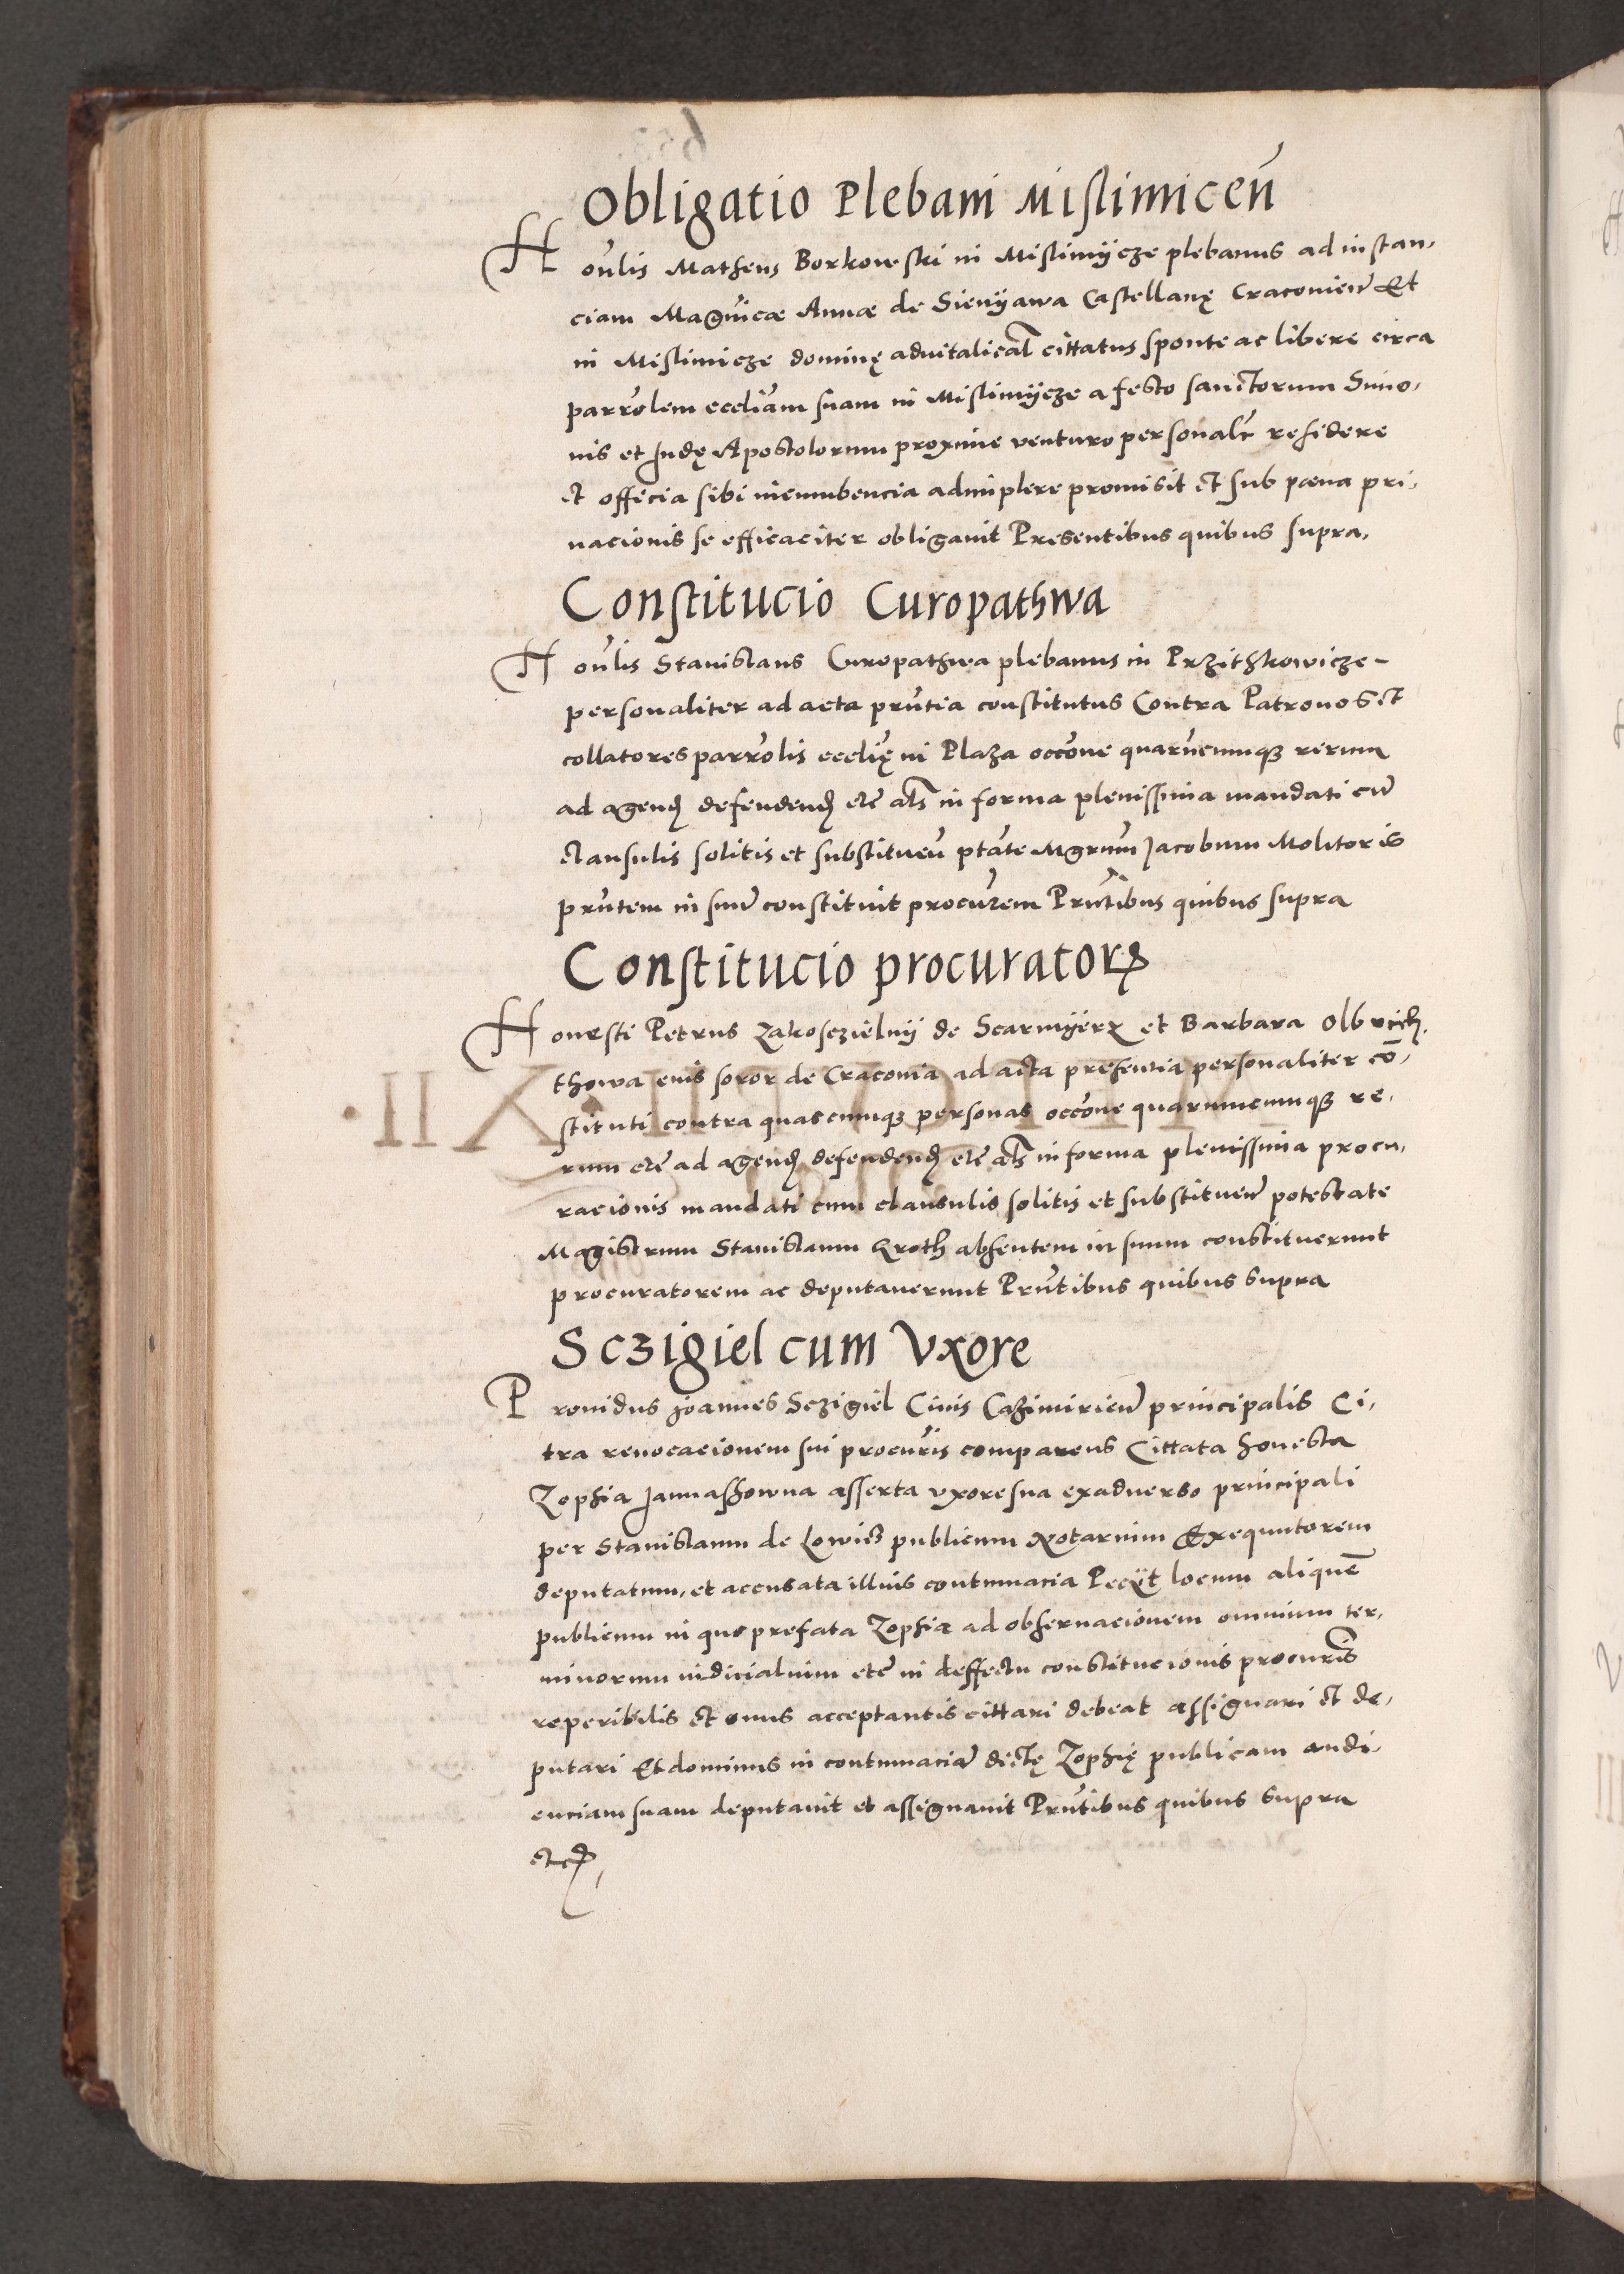 Obligatio Plebani Mislimicen̄
Honlis Matheus Borkowski in Mislimijcze plebanus ad instan,
ciam Magnicæ Annæ de Sienijawa Castellanę Cracovien̄ Et
in Mislimicze dominę advitalical cittatus sponte ac libere circa
parrolem eccliam suam in Mislimijcze a festo sanctorum Simo,
nis et Judę Apostolorum proxime venturo personalr residere
et officia sibi incumbencia adimplere promisit et sub pœna pri,
vacionis se efficaciter obligavit Presentibus quibus supra,
Constitucio Curopathwa
Honlis Stanislaus Curopathwa plebanus in Przithkowicze -
personaliter ad acta prntia constitutus Contra Patronos et
collatores parrolis ecclię in Plaza occone quarucumqȝ rerum
ad agend defendend etc als in forma plenissima mandati cū
clausulis solitis et substituen̄ ptate Mgrum Jacobum Molitoris
prntem in suū constituit procurem Prntibus quibus supra
Constitucio procuratorꝝ
Honesti Petrus Zakosczielnij de Scarmijerz et Barbara Olbrich,
thowa eius soror de Cracovia ad acta presentia personaliter cō,
stituti contra quascumqȝ personas occone quarumcumqȝ re,
rum etc ad agend defendend etc als in forma plenissima procu,
racionis mandati cum clausulis solitis et substituen̄ potestate
Magistrum Stanislaum Kroth absentem in suum constituerunt
procuratorem ac deputaverunt Prntibus quibus supra
Sczigiel cum Vxore
Providus Joannes Sczigiel Civis Cazimirien̄ principalis Ci,
tra revocacionem sui procuris comparens Cittata honesta
Zophia Jannashowna asserta vxore sua ex adverso principali
per Stanislaum de Lowicz publicum Notarium Exequutorem
deputatum, et accusata illius contumacia Pecijt locum aliquē
publicum in quo prefata Zophia ad observacionem omnium ter,
minorum iudicialium etc in deffectu constitucionis procuris
reperibilis et onus acceptantis cittari debeat assignari et de,
putari Et dominus in contumaciā dictę Zophię publicam audi,
enciam suam deputavit et assignavit Prntibus quibus supra
etc